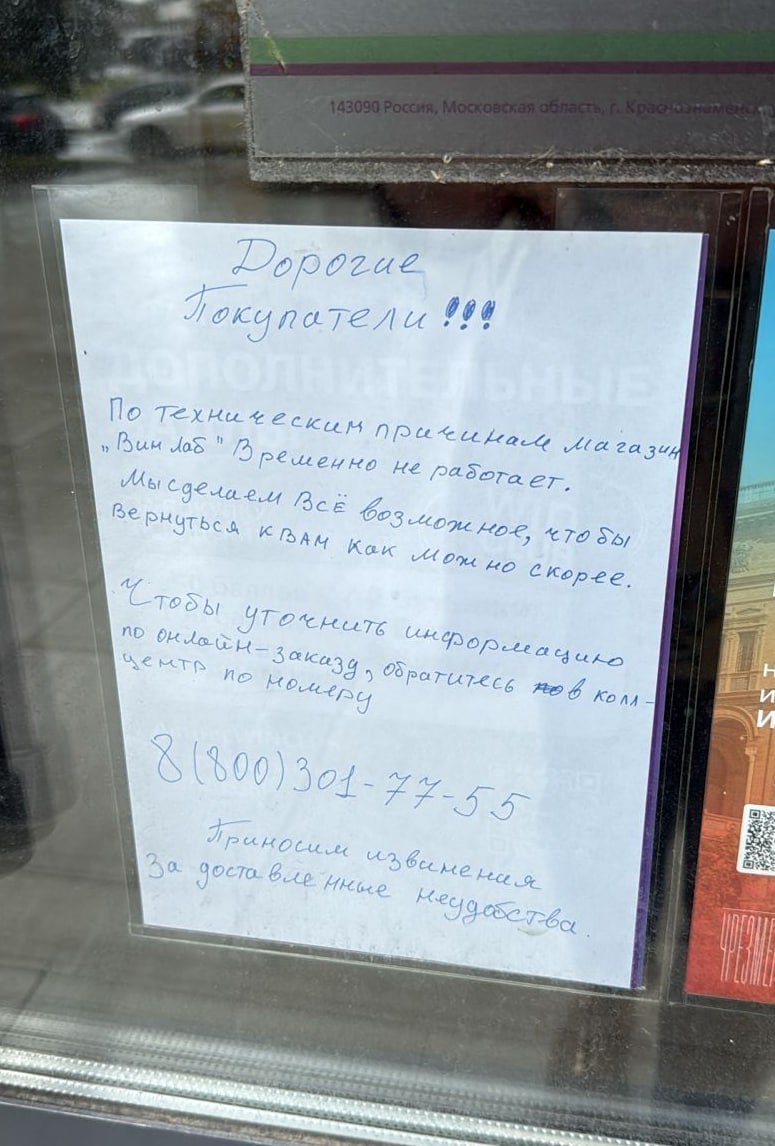 143090 Россия, Московская область, г. Краснознаменск
Дорогие
Покупатели!!!
ДОПОЛНИТЕЛЬНЫЕ
По техническим причинам магазин
„Винлаб" Временно не работает.
Мы сделаем Всё возможное, чтобы
вернуться к вам как можно скорее.
Чтобы уточнить информацию
по онлайн-заказу, обратитесь в колл-
центр по номеру
8(800)301-77-55
Приносим извинения
За доставленные неудобства.
Н
И
И
ЧРЕЗМЕ